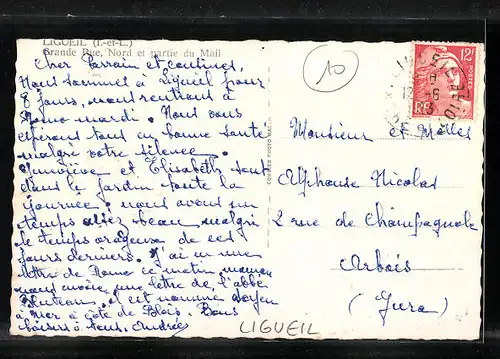 LIGUEIL (I.-et-L.)
Grande Rue, Nord et partie du Mail
Cher Parrain et cousines,
Nous sommes à Ligueil pour
8 jours, nous rentrons à
mardi. Nous vous
espérons tous en bonne santé
malgré votre silence.
Geneviève et Elisabeth sont
dans le jardin toute la
journée; nous avons un
temps assez beau malgré
le temps orageux de ces
jours derniers. J'ai eu une
lettre de Rome ce matin, maman
nous envoie une lettre de l'abbé
il est nommé doyen
à Mer à côté de Blois. Bons
baisers à tous. Andrée
10
12F
POSTES
RF
Monsieur et Melles
Alphonse Nicolas
2 rue de Champagnole
Arbois
(Jura)
LIGUEIL